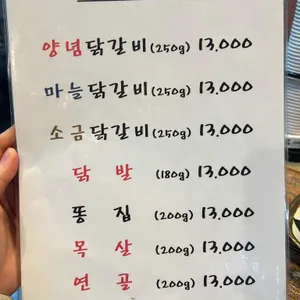 양념닭갈비(250g) 13,000
마늘닭갈비(250g) 13,000
소금닭갈비(250g) 13,000
닭발 (180g) 13,000
똥집 (200g) 13,000
목살 (200g) 13,000
연골 (200g) 13,000